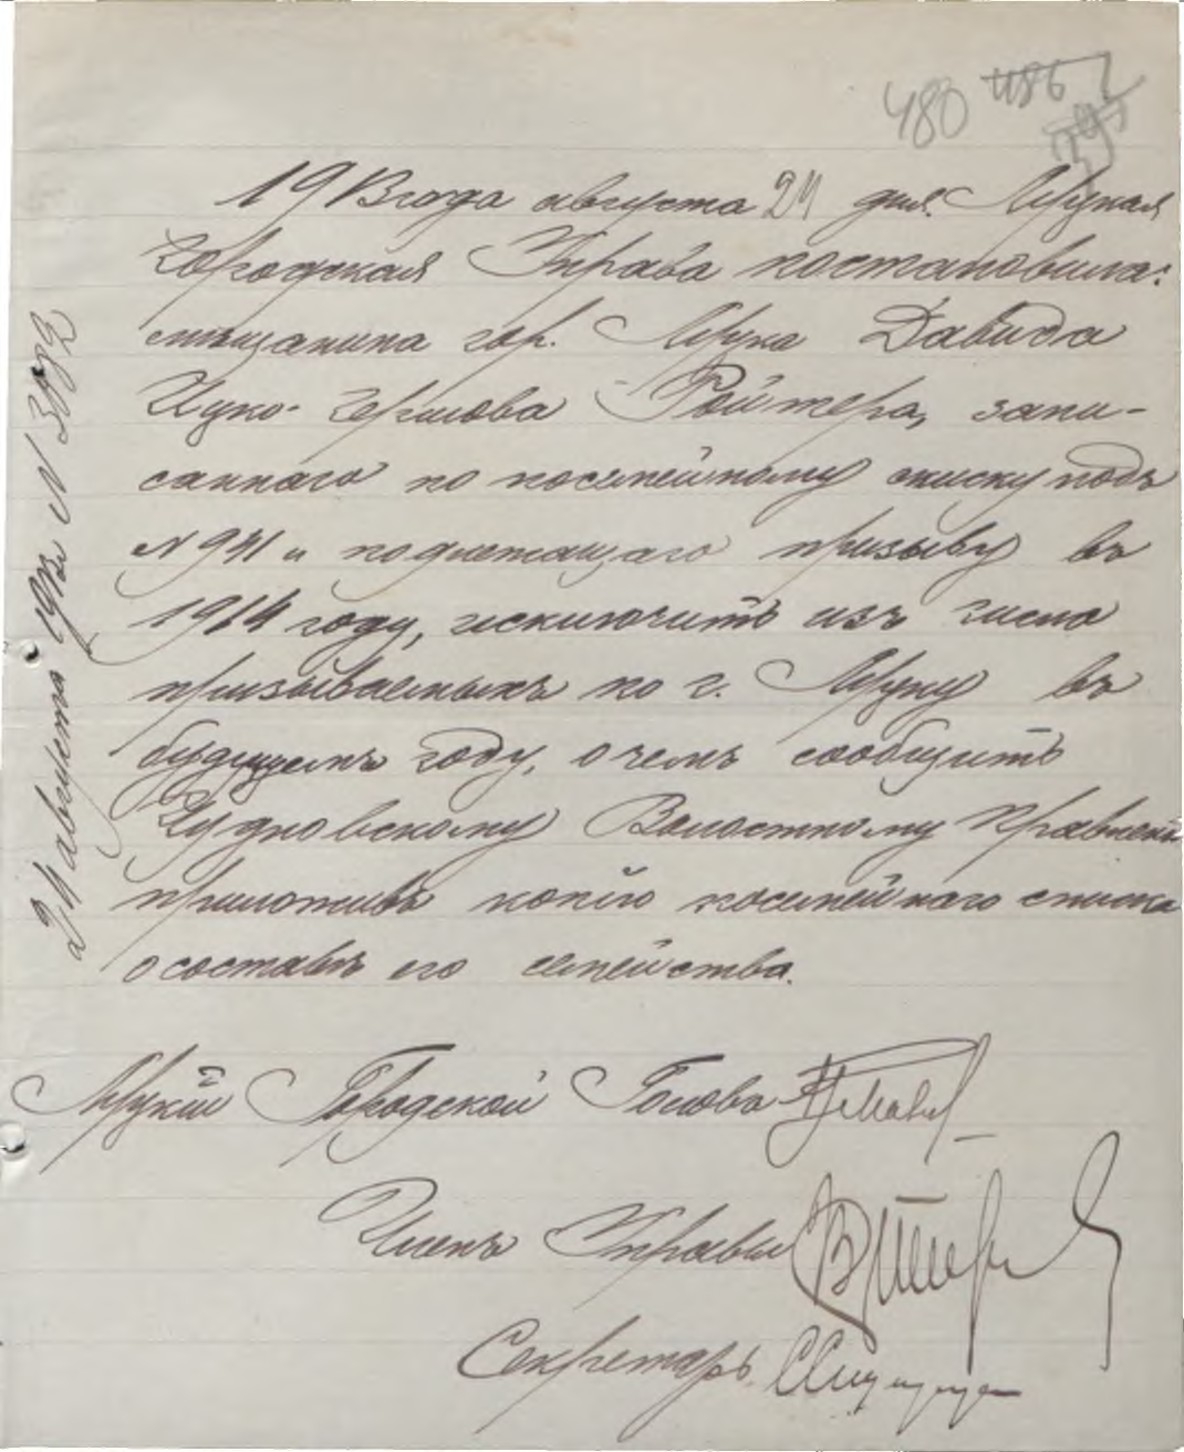 480 486
1913 года августа 24 дня. Луцкая
Городская Управа постановила:
мѣщанина гор. Луцка Давида
Ицко-Гершова Ройтера, запи-
саннаго по посемейному списку подъ
N 941 и подлежащаго призыву въ
1914 году, исключить изъ числа
призываемыхъ по г. Луцку въ
будущемъ году, о чемъ сообщить
Чудновскому Волостному Правленію
приложивъ копію посемейнаго списка
о составѣ его семейства.
Луцкій Городской Голова
Членъ Управы
Секретарь
24 августа 1913 г. N 3082